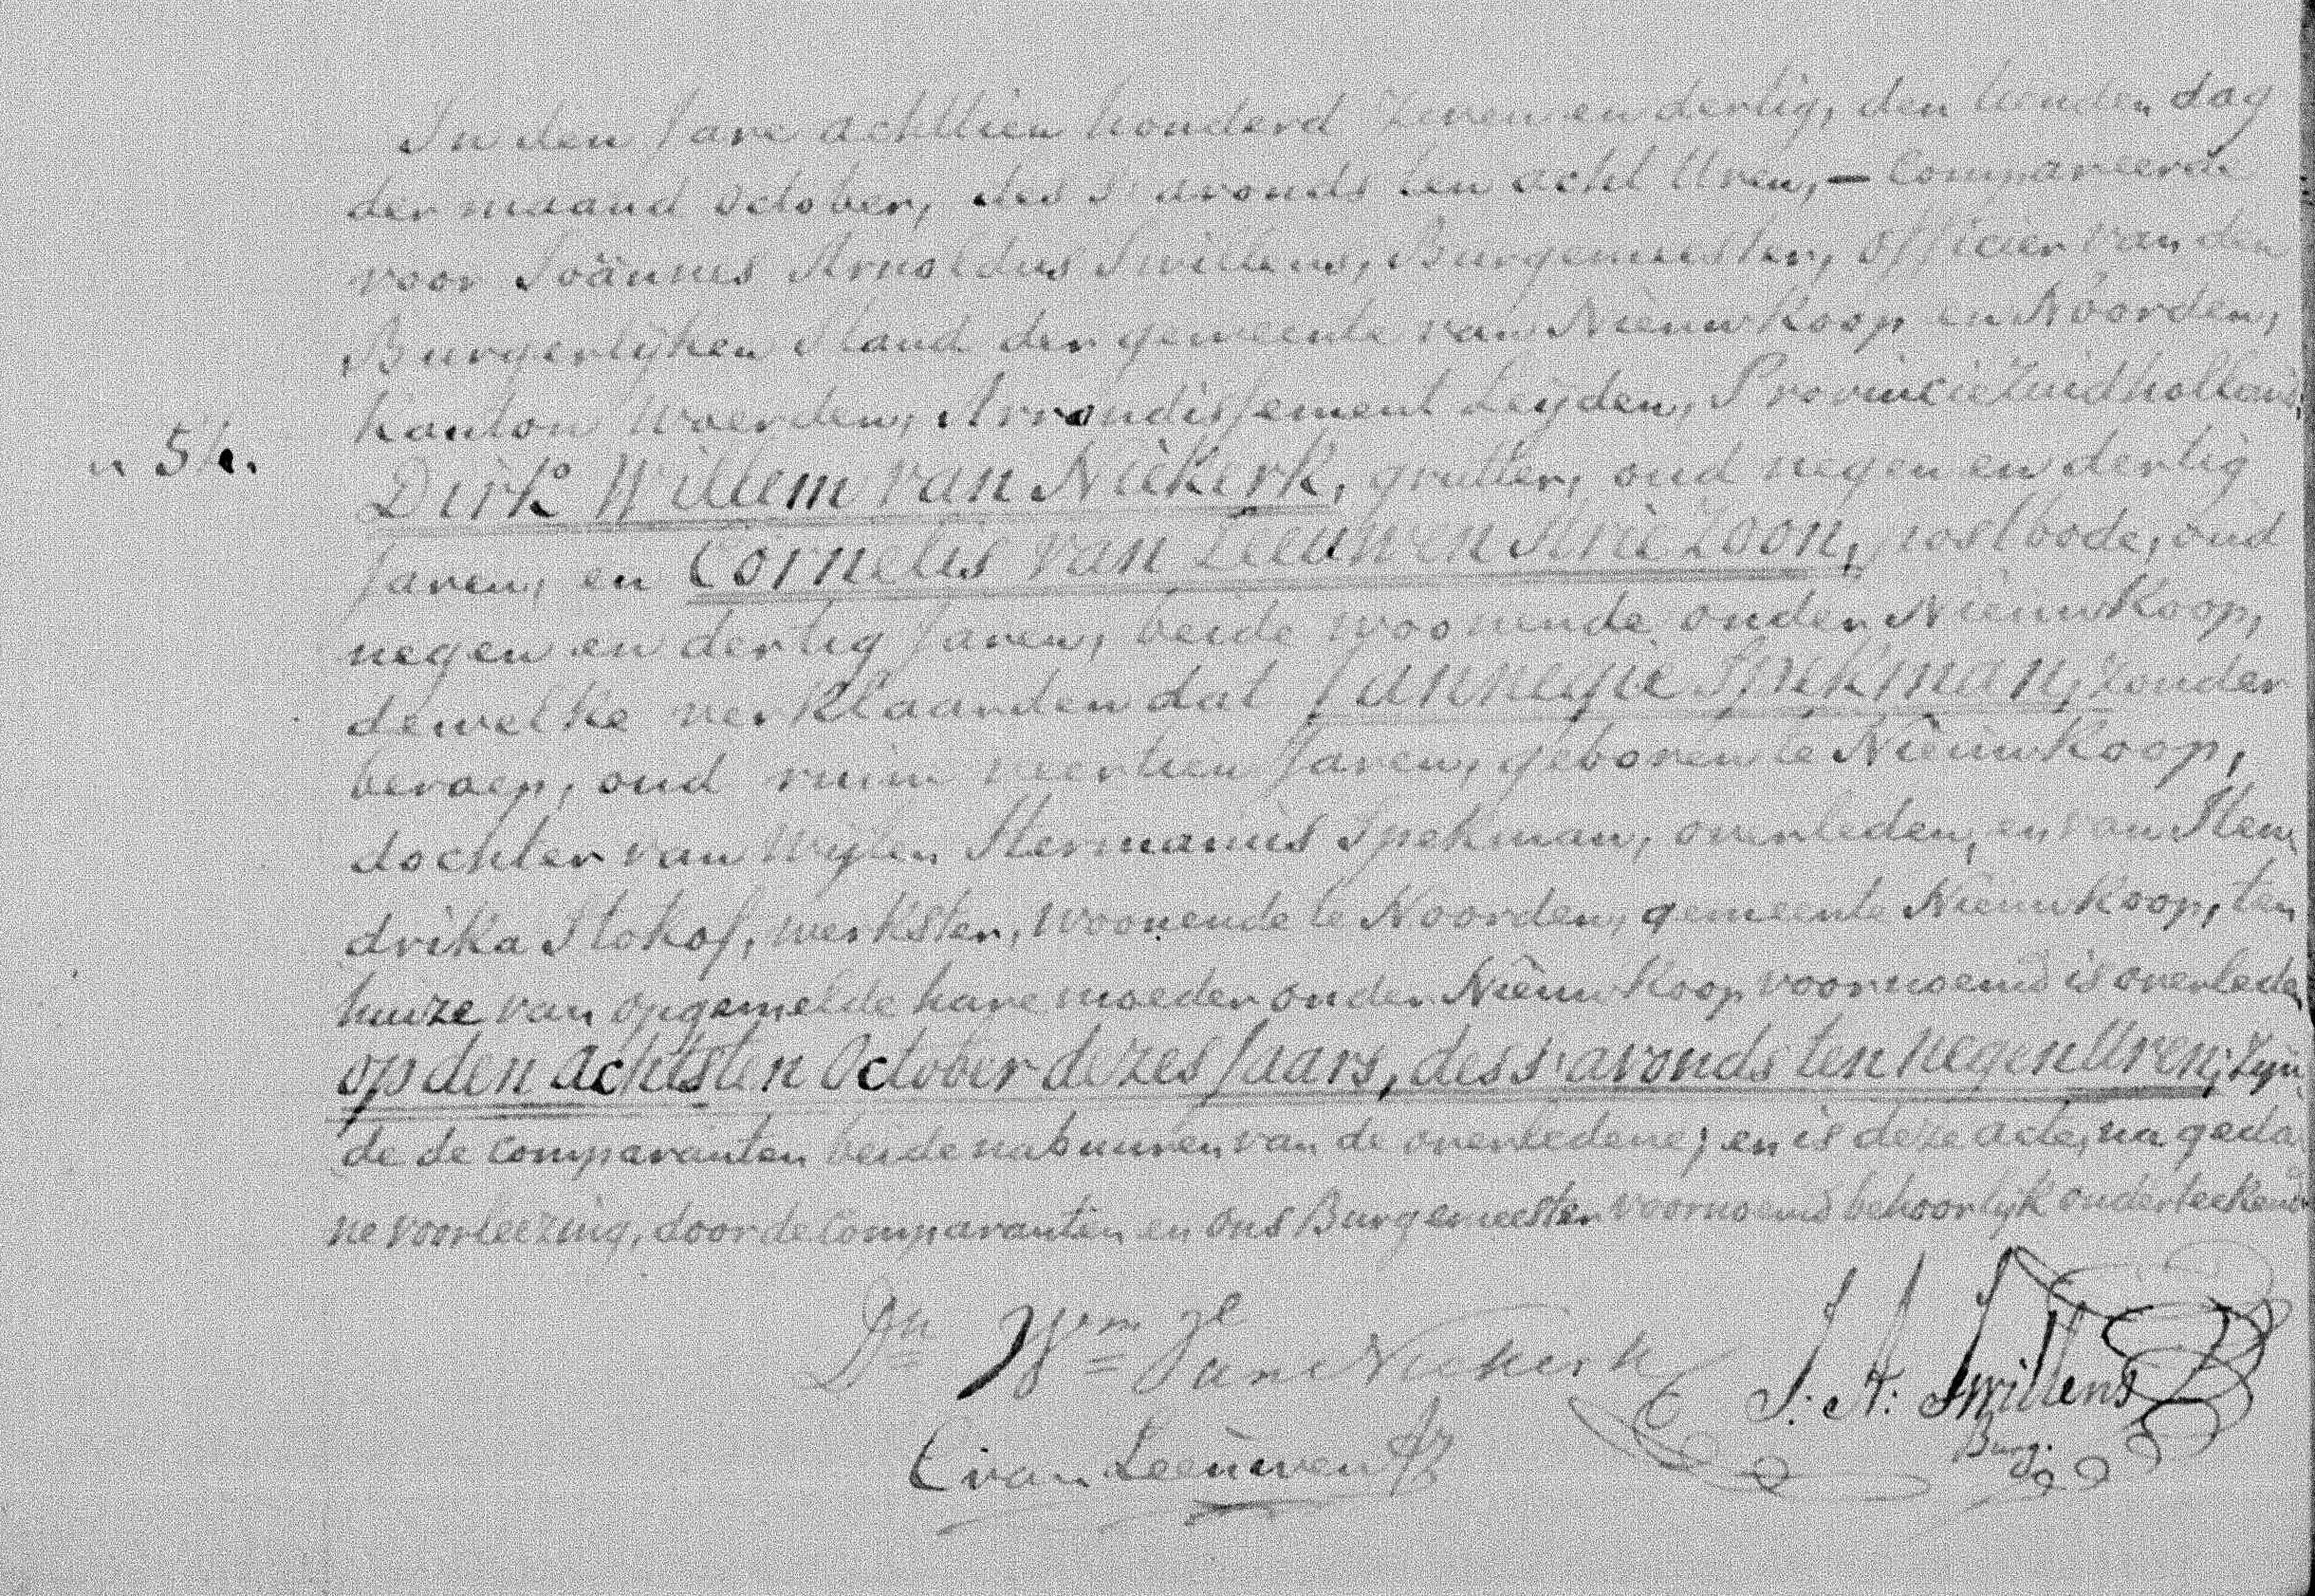 In den Jare achttien honderd zeven en dertig, den tienden dag
der maand october, des s'avonds ten acht Uren, — Compareerde
voor Joännes Arnoldus Swillens, Burgemeester, officier van den
Burgerlijken Stand der gemeente van Nieuwkoop en Noorden,
kanton Woerden, Arrondissement Leijden, Provincie Zuidholland,
n 54.
Dirk Willem van Niekerk, grutter, oud negen en dertig
Jaren, en Cornelis van Leeuwen Arie Zoon, postbode, oud
negen en dertig Jaren, beide woonende onder Nieuwkoop,
dewelke verklaarden dat Jannegie Spekman, zonder
beroep, oud ruim veertien Jaren, geboren te Nieuwkoop,
dochter van wijlen Hermanus Spekman, overleden, en van Hen
drika Stokof, werkster, woonende te Noorden, gemeente Nieuwkoop, ten
huize van opgemelde hare moeder onder Nieuwkoop voornoemd is overleden
op den achtsten October dezes Jaars, des s'avonds ten negen Uren; zijn
de de comparanten beide nabuuren van de overledene; en is deze acte, na geda
ne voorleezing, door de Comparanten en ons Burgemeester voornoemd behoorlijk onderteekend
Dk Wm van Niekerk
J. A. Swillens
Burg.
C van Leeuwen Az